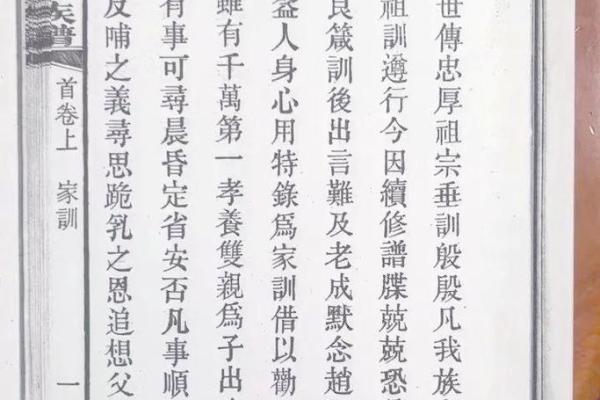 世傳忠厚祖宗垂訓殷殷凡我族
祖訓遵行今因續修譜牒兢兢恐
良箴訓後出言難及老成默念趙
益人身心用特錄為家訓借以勸
雖有千萬第一孝養雙親為子出
有事可尋晨昏定省安否凡事順
反哺之義尋思跪乳之恩追想父
族譜
首卷上 家訓 一